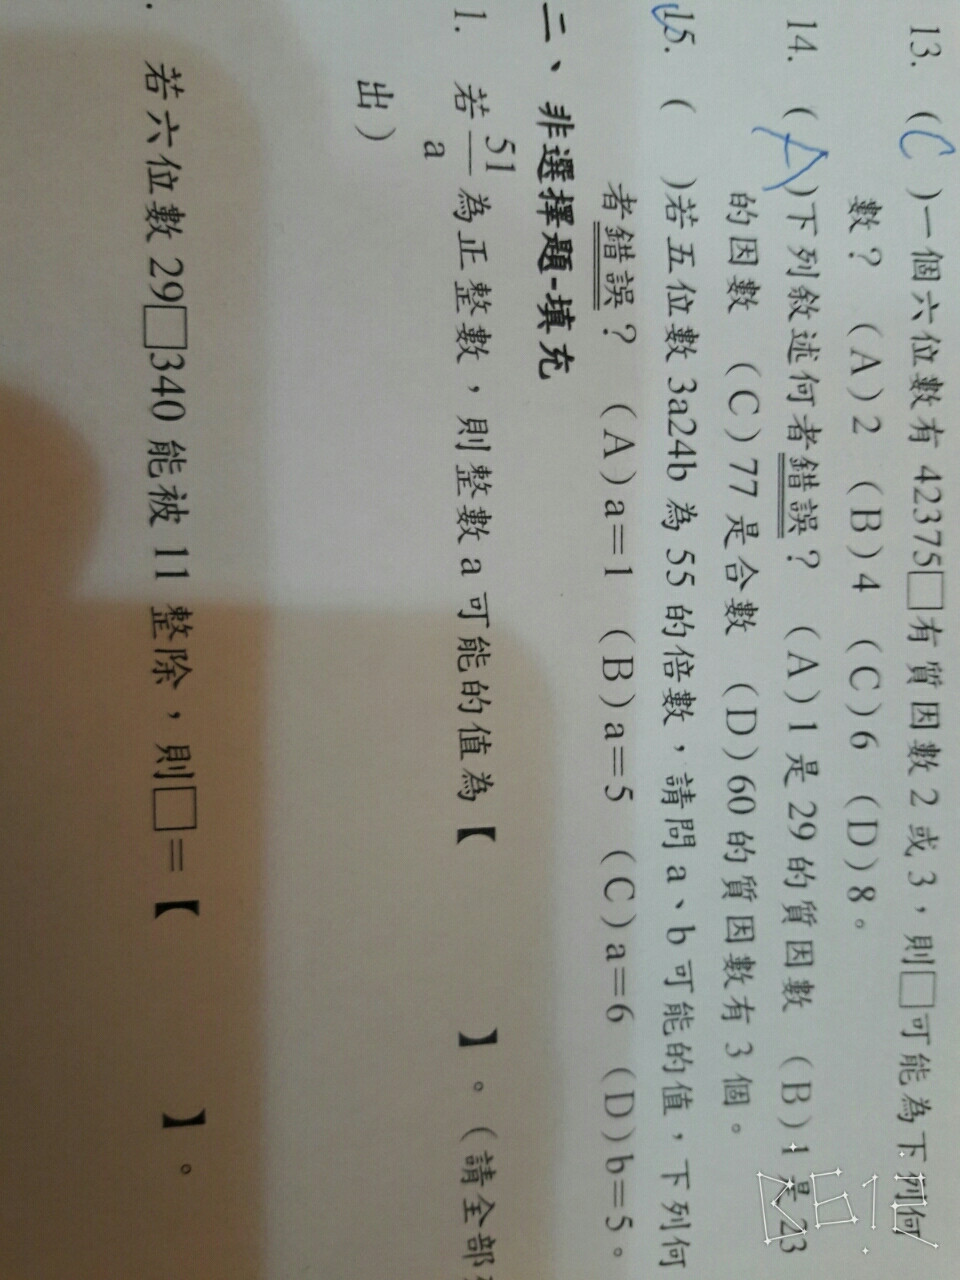 13. (C)一個六位數有42375□有質因數2或3，則□可能為下列何
數？ (A)2 (B)4 (C)6 (D)8。
14. (A)下列敘述何者錯誤？ (A)1是29的質因數 (B)1是23
的因數 (C)77是合數 (D)60的質因數有3個。
15. ( )若五位數3a24b為55的倍數，請問a、b可能的值，下列何
者錯誤？ (A)a=1 (B)a=5 (C)a=6 (D)b=5。
二、非選擇題-填充
1. 若51/a為正整數，則整數a可能的值為【 】。(請全部
出)
若六位數29□340能被11整除，則□=【 】。